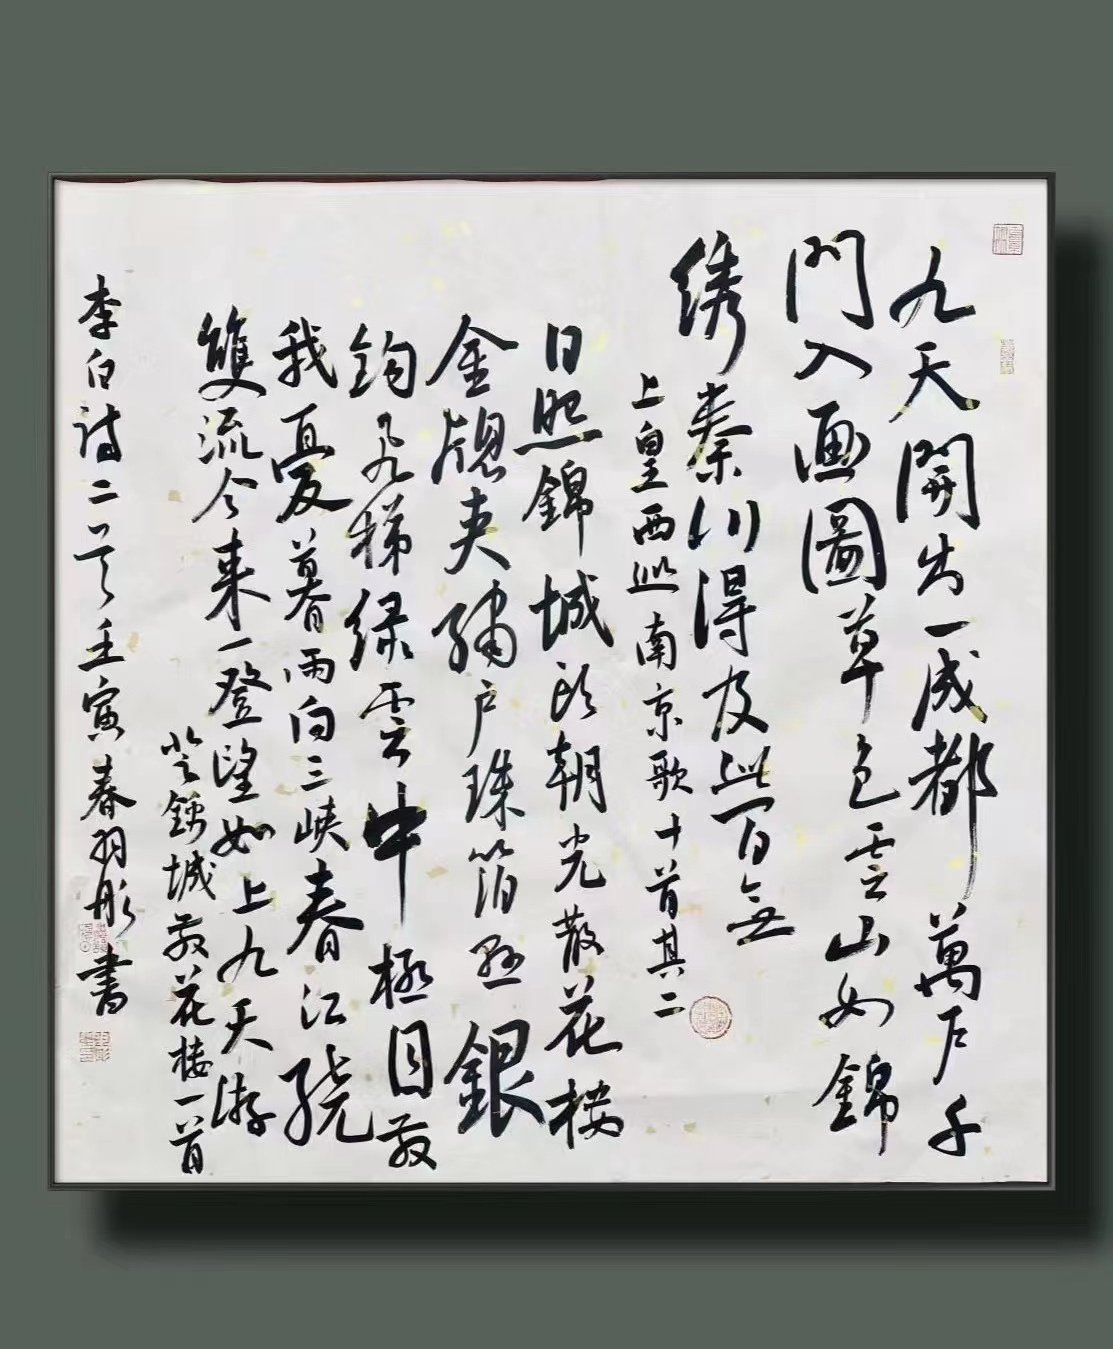 九天開出一成都萬户千
門入画圖草色雲山如錦
绣秦川得及此间無
上皇西巡南京歌十首其二
日照錦城頭朝光散花楼
金牕夹繡户珠箔悬銀
鈎飞梯绿雲中極目散
我憂暮雨向三峡春江繞
雙流今来一登望如上九天游
登錦城散花楼一首
李白诗二首壬寅春羽彤書